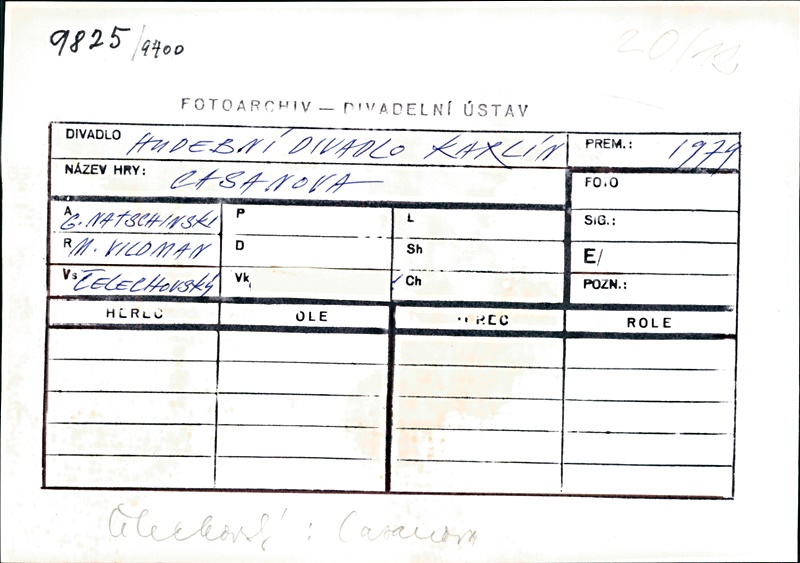 9825/9400
20/12
FOTOARCHIV — DIVADELNÍ ÚSTAV
DIVADLO HUDEBNÍ DIVADLO KARLÍN PREM.: 1979
NÁZEV HRY: CASANOVA FOTO
A G. NATSCHINSKI P L SIG.:
R M. VILDMAN D Sh E/
Vs ČELECHOVSKÝ Vk Ch POZN.:
HEREC OLE HEREC ROLE
Čelechovský : Casanova